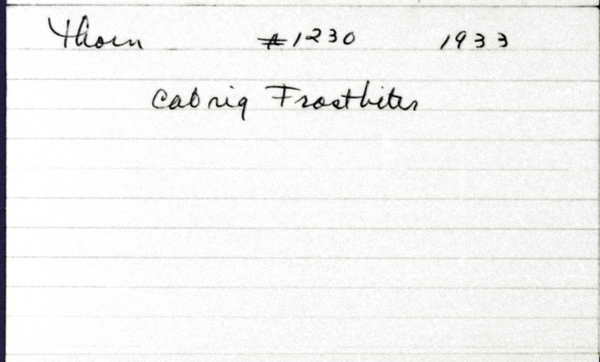 Thorn #1230 1933
Catrig Frostbiter